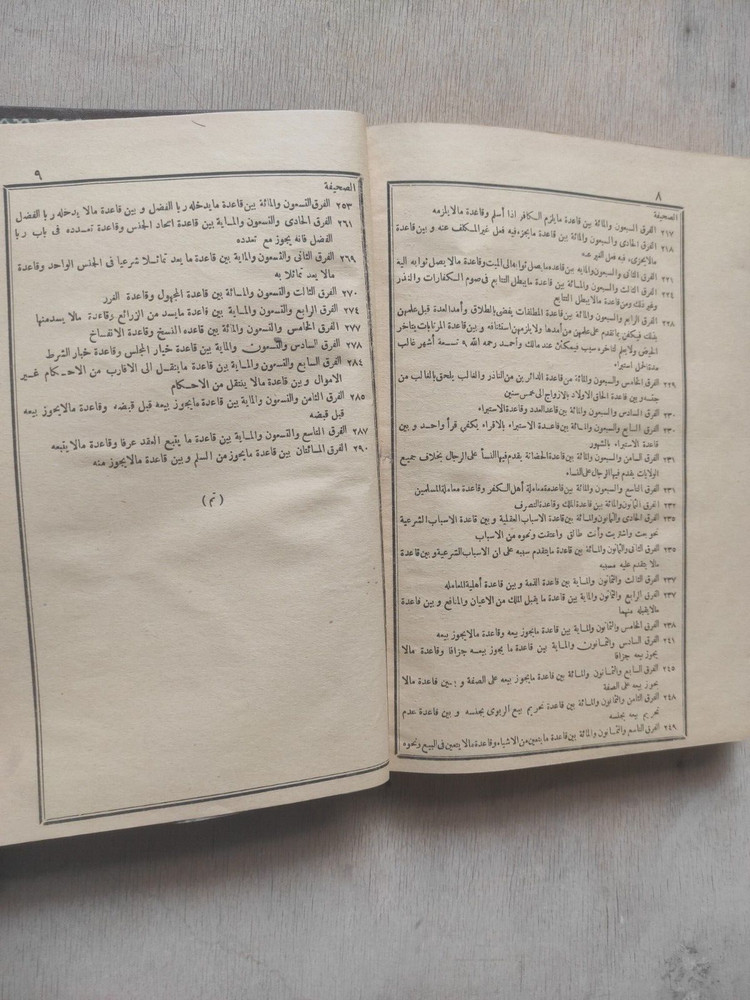 ٨
الصحيفة
٢١٧ الفرق السبعون والمائة بين قاعدة مايلزم الكافر اذا أسلم وقاعدة مالا يلزمه
٢١٨ الفرق الحادى والسبعون والمائة بين قاعدة مايجزئ فيه فعل غير المكلف عنه و بين قاعدة
مالايجزئ فيه فعل الغير عنه
٢٢١ الفرق الثانى والسبعون والمائة بين قاعدة مايصل ثوابه الى الميت وقاعدة مالا يصل ثوابه اليه
٢٢٤ الفرق الثالث والسبعون والمائة بين قاعدة مايبطل التتابع فى صوم الكفارات والنذر
وغير ذلك وبين قاعدة مالايبطل التتابع
٢٢٨ الفرق الرابع والسبعون والمائة بين قاعدة المطلقات يقضى بالطلاق وأمد العدة قبل علمهن
بذلك فيكفى ما تقدم على علمهن من أمدها ولا يلزمهن استئنافه و بين قاعدة المرتابات يتأخر
الحيض ولا يعلم لتأخره سبب فيمكثن عند مالك وأحمد رحمه الله ٩ تسعة أشهر غالب
مدة الحمل استبراء
٢٢٩ الفرق الخامس والسبعون والمائة بين قاعدة الدائر بين النادر والغالب يلحق بالغالب من
جنسه و بين قاعدة الحاق الاولاد بالازواج الى خمس سنين
٢٣٠ الفرق السادس والسبعون والمائة بين قاعدة العدد وقاعدة الاستبراء
٢٣٠ الفرق السابع والسبعون والمائة بين قاعدة الاستبراء بالاقراء يكفى قرأ واحد و بين
قاعدة الاستبراء بالشهور
٢٣١ الفرق الثامن والسبعون والمائة بين قاعدة الحضانة يقدم فيها النساء على الرجال بخلاف جميع
الولايات يقدم فيها الرجال على النساء
٢٣١ الفرق التاسع والسبعون والمائة بين قاعدة معاملة أهل الكفر وقاعدة معاملة المسلمين
٢٣٢ الفرق الثمانون والمائة بين قاعدة الملك وقاعدة التصرف
٢٣٥ الفرق الحادى والثمانون والمائة بين قاعدة الاسباب العقلية و بين قاعدة الاسباب الشرعية
نحو بعت واشتريت وأنت طالق واعتقت ونحوه من الاسباب
٢٣٥ الفرق الثانى والثمانون والمائة بين قاعدة مايتقدم مسببه على ان الاسباب الشرعية و بين قاعدة
مالا يتقدم عليه مسببه
٢٣٧ الفرق الثالث والثمانون والماية بين قاعدة الذمة و بين قاعدة أهلية المعاملة
٢٣٧ الفرق الرابع والثمانون والماية بين قاعدة مايقبل الملك من الاعيان والمنافع و بين قاعدة
مالا يقبله منهما
٢٣٨ الفرق الخامس والثمانون والماية بين قاعدة مايجوز بيعه وقاعدة مالايجوز بيعه
٢٤١ الفرق السادس والثمانون والماية بين قاعدة ما يجوز بيعه جزافا وقاعدة مالا
يجوز بيعه جزافا
٢٤٥ الفرق السابع والثمانون والمائة بين قاعدة مايجوز بيعه على الصفة و بين قاعدة مالا
يجوز بيعه على الصفة
٢٤٨ الفرق الثامن والثمانون والمائة بين قاعدة تحريم بيع الربوى بجنسه و بين قاعدة عدم
تحريم بيعه بجنسه
٢٤٩ الفرق التاسع والثمانون والمائة بين قاعدة مايتعين من الاشياء وقاعدة مالا يتعين فى البيع ونحوه
٩
الصحيفة
٢٥٣ الفرق التسعون والمائة بين قاعدة مايدخله ربا الفضل و بين قاعدة مالا يدخله ربا الفضل
٢٦١ الفرق الحادى والتسعون والماية بين قاعدة اتحاد الجنس وقاعدة تعدده فى باب ربا
الفضل فانه يجوز مع تعدده
٢٦٩ الفرق الثانى والتسعون والماية بين قاعدة ما يعد تماثلا شرعيا فى الجنس الواحد وقاعدة
مالا يعد تماثلا به
٢٧٠ الفرق الثالث والتسعون والمائة بين قاعدة المجهول وقاعدة الغرر
٢٧٤ الفرق الرابع والتسعون والماية بين قاعدة مايسد من الزرائع وقاعدة مالا يسد منها
٢٧٧ الفرق الخامس والتسعون والمائة بين قاعده الفسخ وقاعدة الانفساخ
٢٧٨ الفرق السادس والتسعون والماية بين قاعدة خيار المجلس وقاعدة خيار الشرط
٢٨٤ الفرق السابع والتسعون والماية بين قاعدة ماينتقل الى الاقارب من الاحكام غير
الاموال و بين قاعدة مالا ينتقل من الاحكام
٢٨٥ الفرق الثامن والتسعون والماية بين قاعدة مايجوز بيعه قبل قبضه وقاعدة مالايجوز بيعه
قبل قبضه
٢٨٧ الفرق التاسع والتسعون والماية بين قاعدة ما يتبع العقد عرفا وقاعدة مالايتبعه
٢٩٠ الفرق المائتان بين قاعدة مايجوز من السلم و بين قاعدة مالايجوز منه
(تم)